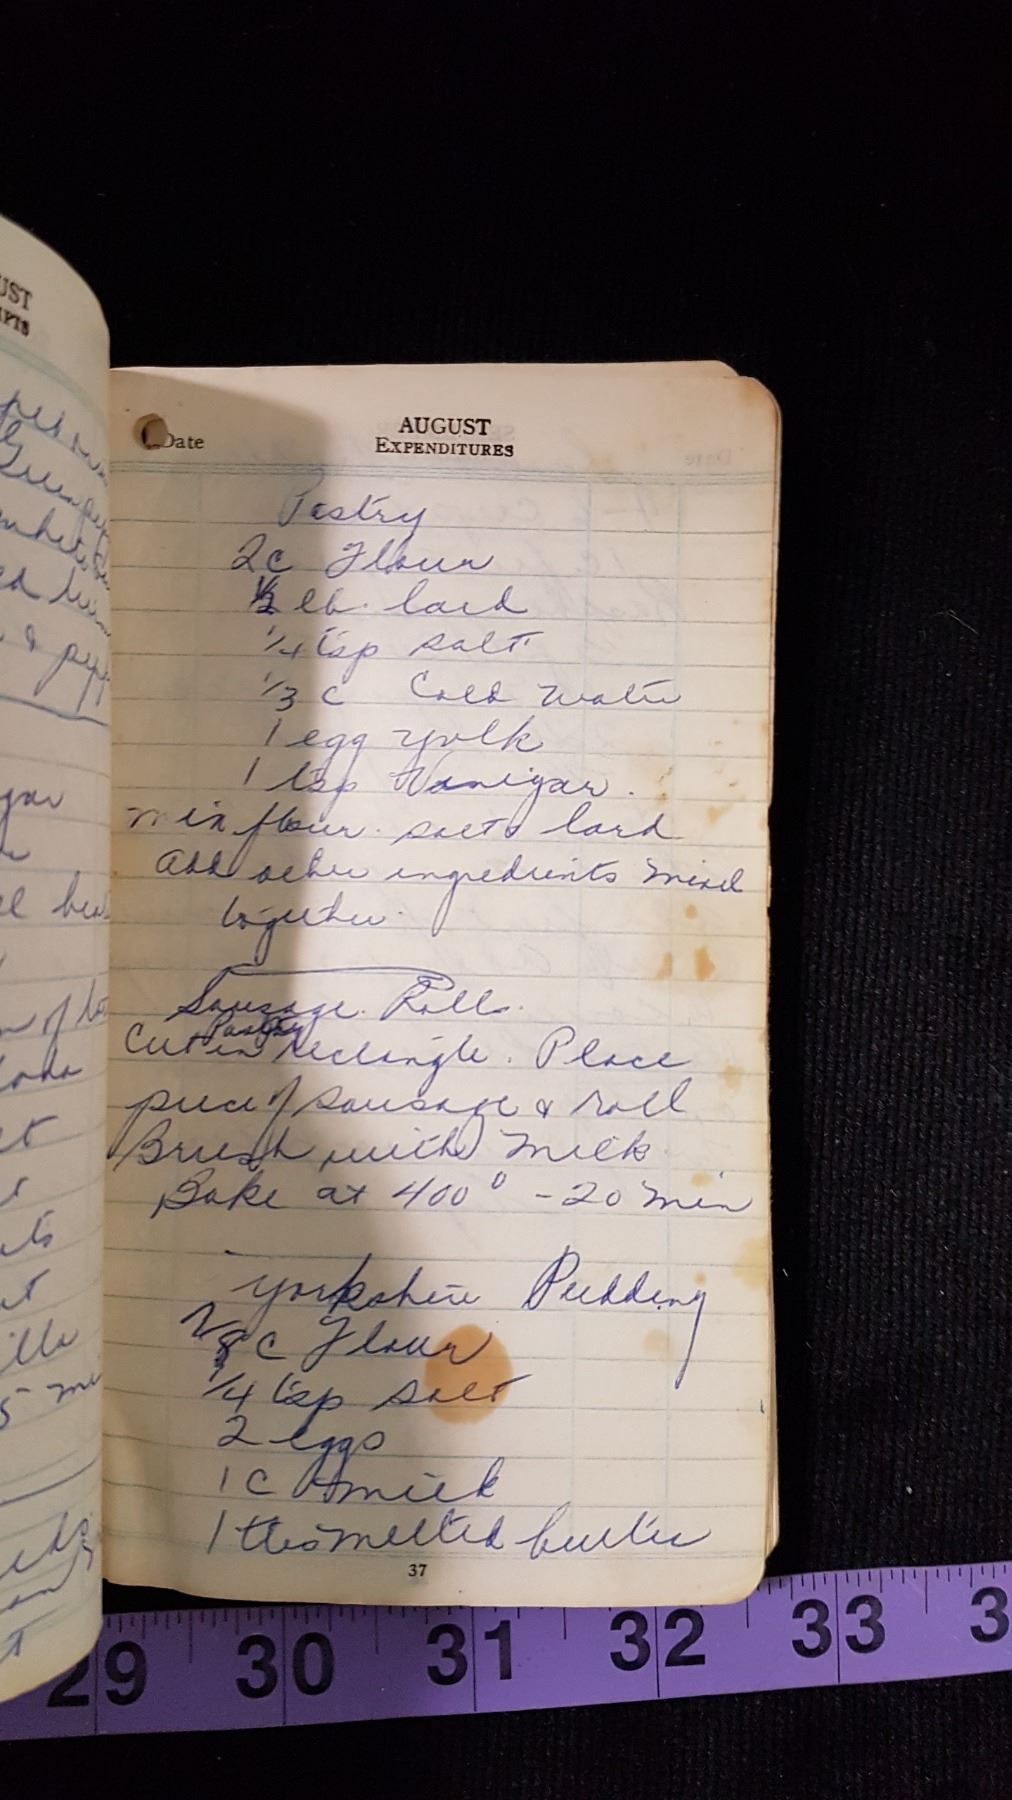 UST
IPTS
Date
AUGUST
EXPENDITURES
Pastry
2c Flour
1/2 lb. lard
1/4 tsp salt
1/3 c Cold Water
1 egg yolk
1 tsp Vanigar.
mix flour. salt & lard
add other ingredients mixed
together.
Sausage Rolls.
Pastry
Cut in rectangle. Place
piece of sausage & roll
Brush with Milk
Bake at 400° - 20 min
Yorkshire Pudding
7/8 c Flour
1/4 tsp salt
2 eggs
1 c milk
1 tbs melted butter
37
& pep
gar
of hot
et
illa
5 mi
29 30 31 32 33 3